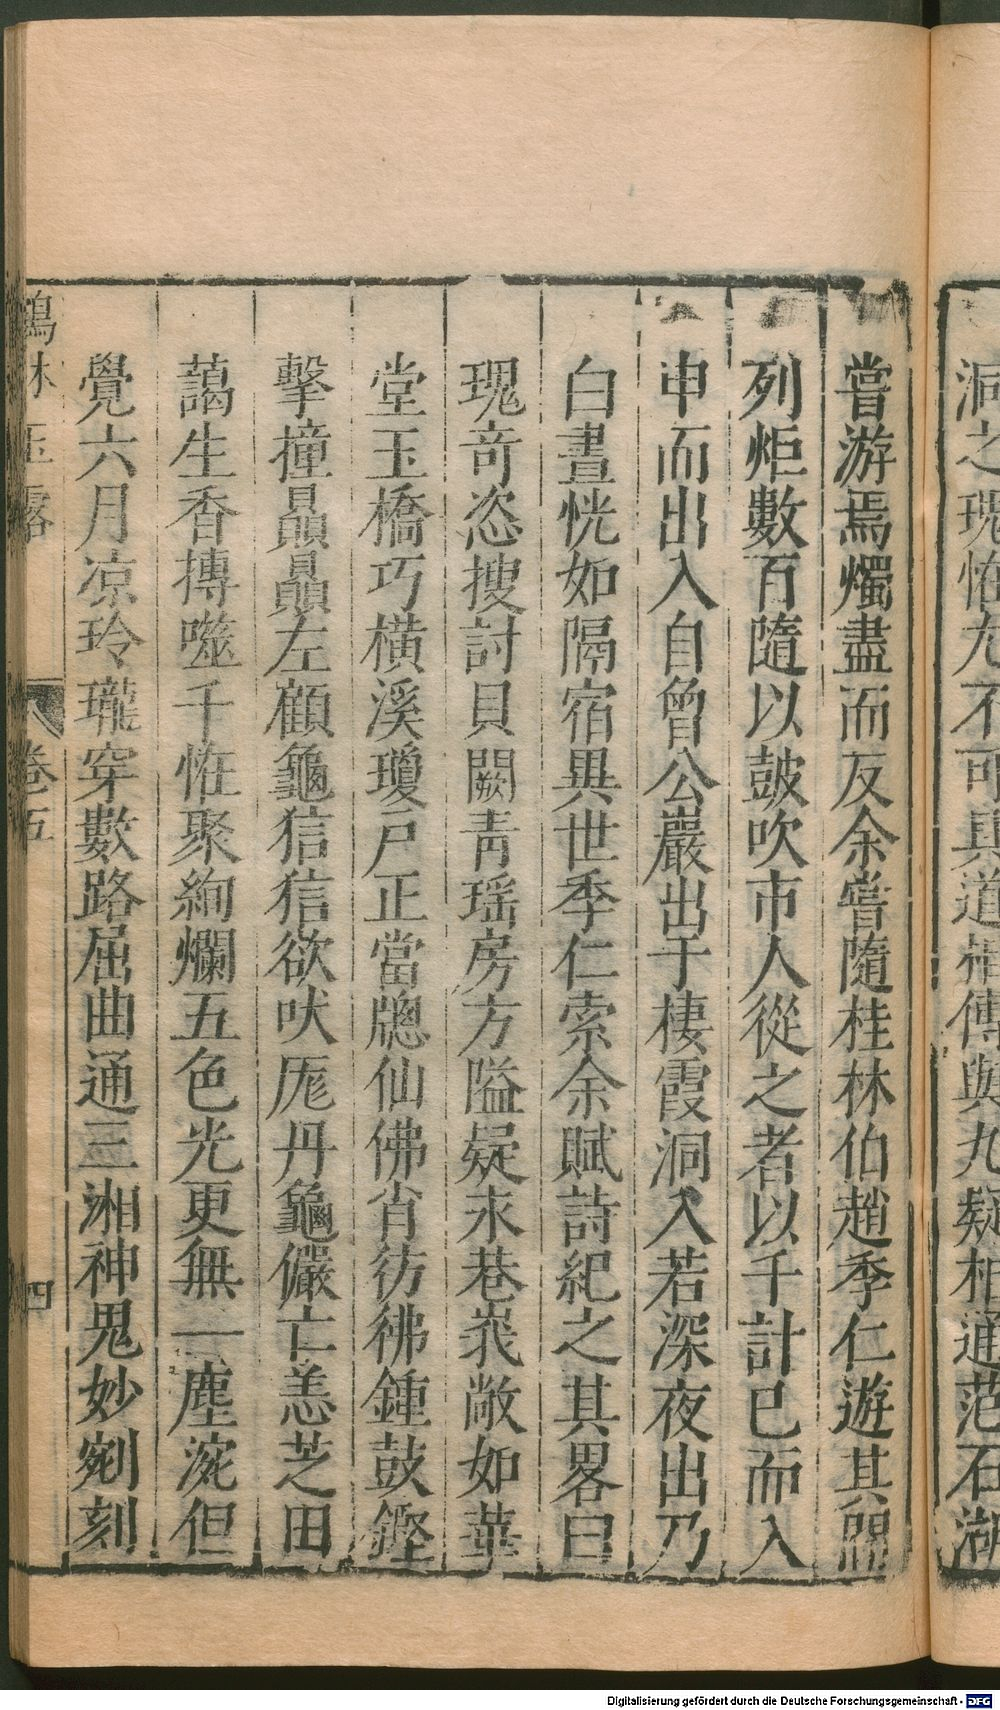 洞之瑰恠尤不可具道相傳與九疑相通范石湖
嘗游焉燭盡而反余嘗隨桂林伯趙季仁遊其間
列炬數百隨以鼓吹市人從之者以千計巳而入
申而出入自曾公巖出于棲霞洞入若深夜出乃
白晝恍如隔宿異世季仁索余賦詩紀之其畧曰
瑰竒恣搜討貝闕青瑶房方隘疑永巷俄敞如華
堂玉橋巧橫溪瓊戸正當牕仙佛肖彷彿鍾鼓鏗
擊撞贔贔左顧龜狺狺欲吠厖丹竈儼亡恙芝田
藹生香搏噬千恠聚絢爛五色光更無一塵涴但
覺六月凉玲瓏穿數路屈曲通三湘神鬼妙剜刻
鶴林玉露
卷五
四
Digitalisierung gefördert durch die Deutsche Forschungsgemeinschaft - DFG